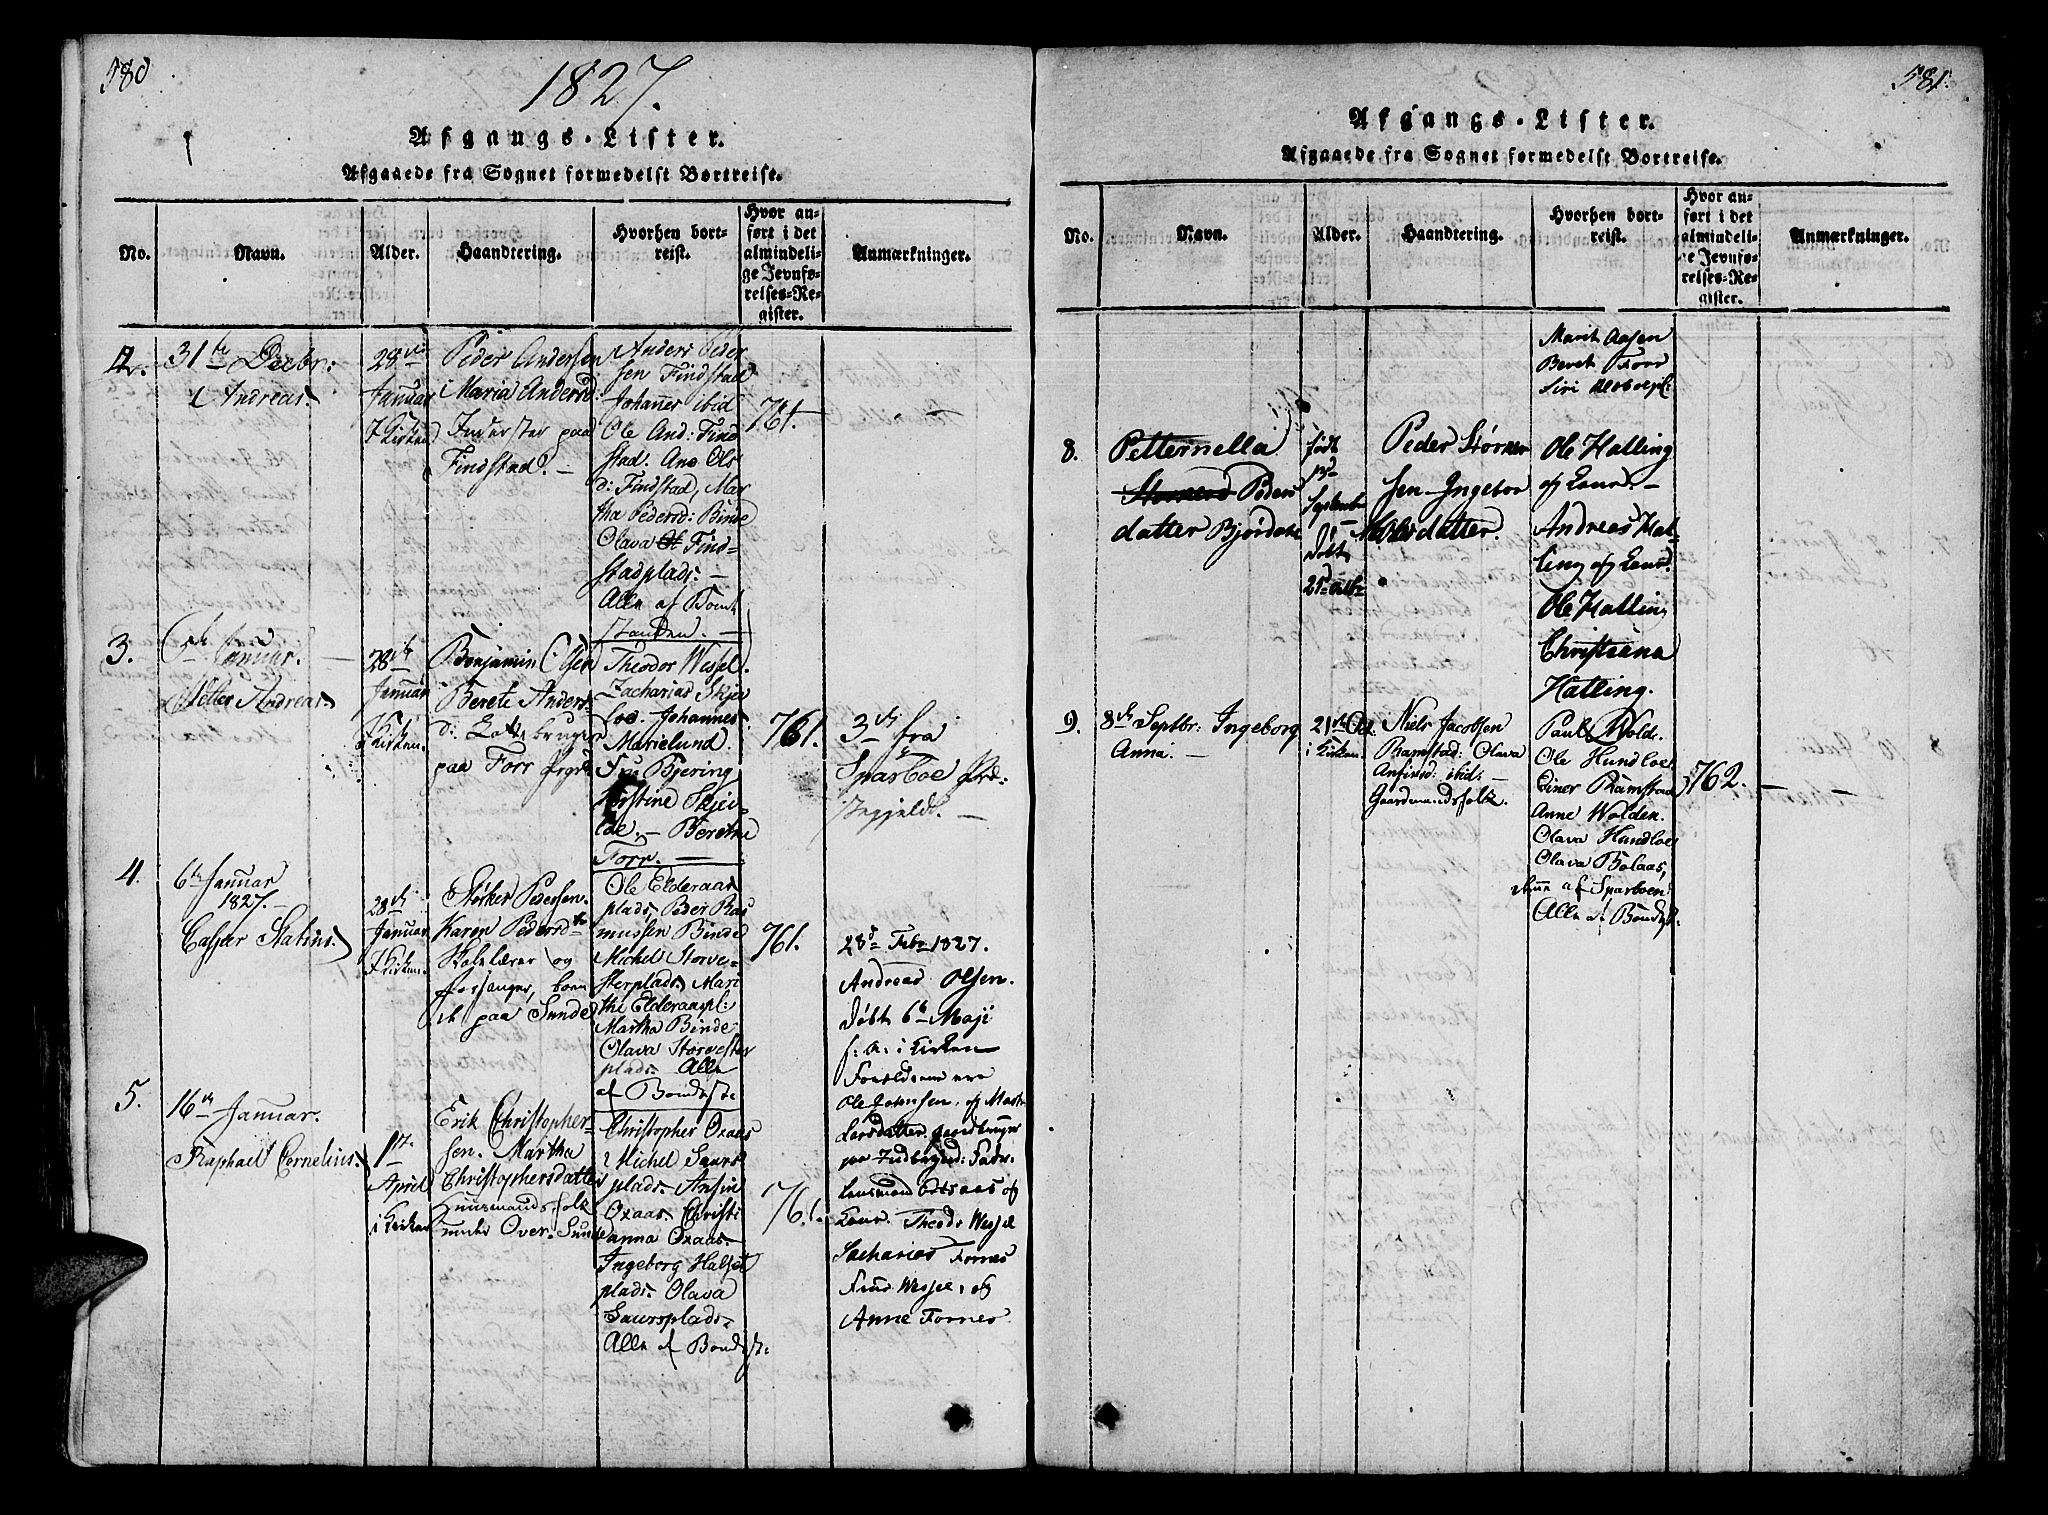 580
1827.
Afgangs-Lister.
Afgaaede fra Sognet formedelst Bortreise.
No.
Navn.
Alder.
Haandtering.
Hvorhen bort-
reist.
Hvor an-
ført i det
almindeli-
ge Jevnfø-
relses-Re-
gister.
Anmærkninger.
31te Decbr:
Andreas.
28de
Januar
I Kirken
Peder Andersen
Maria Andersd:
Inderster paa
Findstad. —
Anders Peder
sen Findstad
Johannes ibid
Ole And: Find
stad. Ane Ols
d: Findstad, Mar
tha Pedersd: Binde
Olava Find-
stadplads. —
Alle af Bonde
standen. —
761.
3.
Januar.
Andreas.
28de
Januar
I Kirken.
Benjamin Olsen
Berete Anders
d:
paa Forr
Theodor Wessel.
Zacharias Skjei
loe. Johannes
Marielund.
Bjering
Skjei-
loe. — Berethe
Forr. —
761.
3de fra
Sparboe
4.
6te Januar
1827. —
Casper Statius.
28de
Januar
I Kirken.
Størker Pedersen.
Karen Pedersdtr
Skolelærer og
forsanger, boen
de paa Sunde
Ole Elderaas
plads, Peder Ras
mussen Binde
Michel Storve-
sterplads. Mari
the Elderaaspl:
Martha Binde
Olava Storvester
plads. Alle
af Bondeste
761.
23de Febr 1827.
Andreas Olsen.
Døbt 6te Maji
f: A: i Kirken
Forældrene ere
Ole Johnsen, og
Larsdatter,
paa
Lensmand og
Theodr Wessel
Sacharias Fornes
Frue Wessel, og
Anne Fornes
5.
16de Januar.
Raphael Cornelius.
1ste
April
i Kirken
Erik Christopher-
sen. Martha
Christophersdatter
Huusmandsfolk
under Over-Sunde
Christopher Oxaas
Michel Saurs
plads. Ansin
Oxaas. Christi
anna Oxaas.
Ingeborg Halset
plads. Olava
Saursplads.
Alle af Bondest:
761.
581.
Afgangs-Lister.
Afgaaede fra Sognet formedelst Bortreise.
No.
Navn.
Alder.
Haandtering.
Hvorhen bort-
reist.
Hvor an-
ført i det
almindeli-
ge Jevnfø-
relses-Re-
gister.
Anmærkninger.
Marit Aasen
Beret Forr
Siri
8.
Petternella
Peders
datter
født
September
Døbt
Peder Størker
sen — Ingebor
datter.
Ole Halling
af
Andreas Hal-
ling af
Ole Halling
Christiana
Halling.
9.
8de Septbr: Ingeborg
Anna.
21de Oct.
i Kirken.
Niels Jacobsen
Ramstad: Olava
Anfinsd: ibid: —
Gaardmandsfolk.
Paul Wold.
Ole Hundloe
Einer Ramstad
Anne Wolden.
Olava Hundloe
Olava Bolaas,
af Sparboen.
Alle af Bondest.
762.